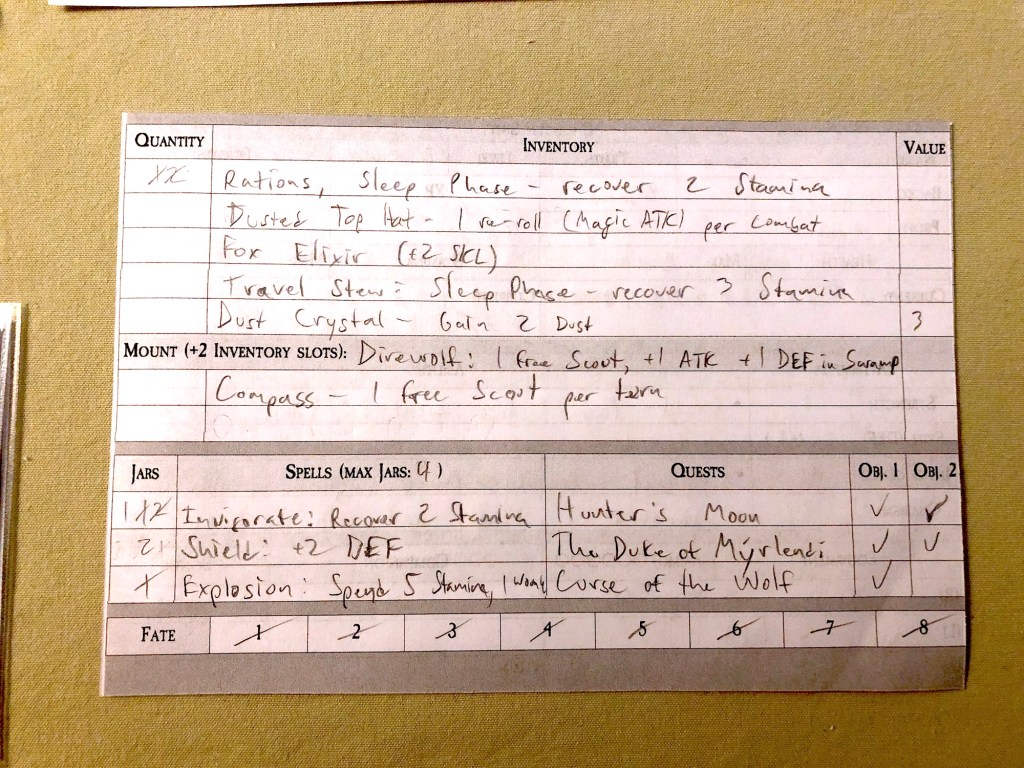 QUANTITY INVENTORY VALUE
Rations, Sleep Phase - recover 2 Stamina
Dusted Top Hat - 1 re-roll (Magic ATK) per combat
Fox Elixir (+2 SKL)
Travel Stew: Sleep Phase - recover 3 Stamina
Dust Crystal - Gain 2 Dust 3
MOUNT (+2 INVENTORY SLOTS): Direwolf: 1 free Scout, +1 ATK +1 DEF in Swamp
Compass - 1 free Scout per turn
JARS SPELLS (MAX JARS: 4) QUESTS OBJ. 1 OBJ. 2
Invigorate: Recover 2 Stamina Hunter's Moon ✓ ✓
2 Shield: +2 DEF The Duke of Mýrlendi ✓ ✓
Explosion: Spend 5 Stamina, 1 Curse of the Wolf ✓
FATE 1 2 3 4 5 6 7 8